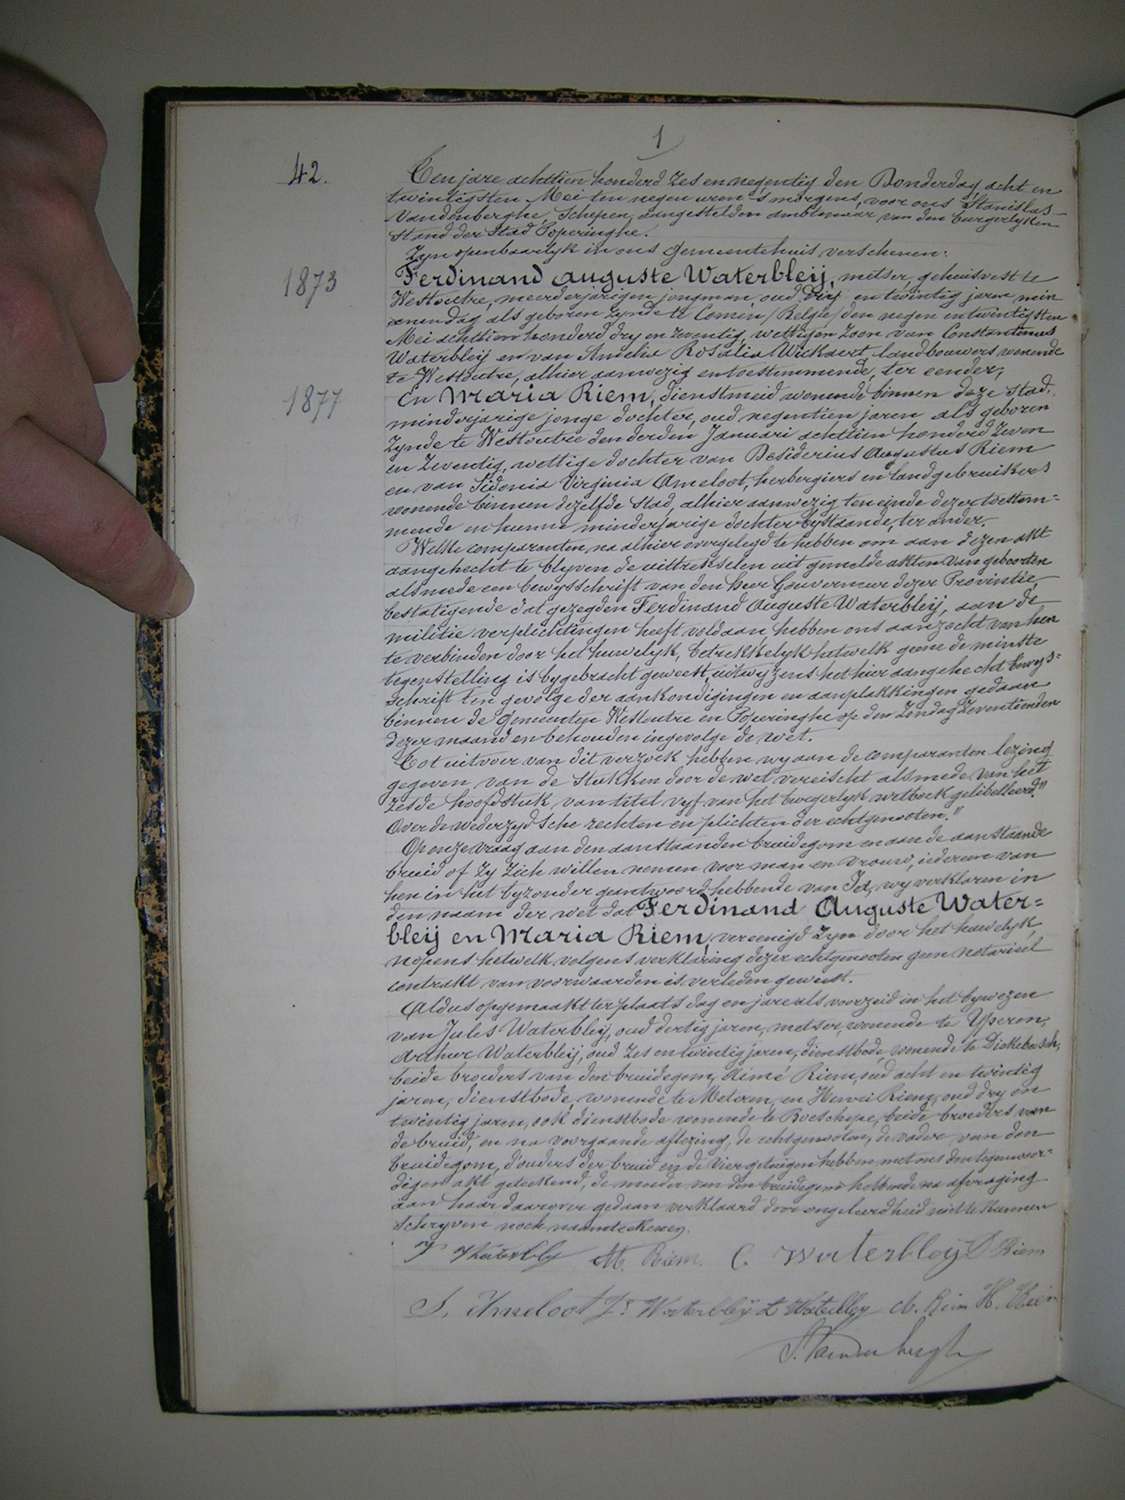 1
42.
Ten jare achttien honderd zes en negentig den Donderdag acht en
twintigsten Mei ten negen uren 's morgens, voor ons Stanislas
Vandenberghe, Schepen, aangestelden ambtenaar van den burgerlyken
stand der Stad Poperinghe.
Zyn openbaarlyk in ons Gemeentehuis verschenen:
1873
Ferdinand Auguste Waterbleij, metser, gehuisvest te
Westoutre, meerderjarigen jongman, oud dry en twintig jaren min
eenen dag als geboren zynde te Comen /Belgie/ den negen en twintigsten
Mei achttien honderd dry en zeventig, wettigen zoon van Constantinus
Waterbleij en van Amelia Rosalia Wickaert, landbouwers wonende
te Westoutre, alhier aanwezig en toestemmende, ter eender;
1877
En Maria Riem, dienstmeid wonende binnen deze Stad,
minderjarige jonge dochter, oud negentien jaren als geboren
zynde te Westoutre den derden Januari achttien honderd zeven
en zeventig, wettige dochter van Desiderius Augustus Riem
en van Sidonia Virginia Ameloot, herbergiers en landgebruikers
wonende binnen dezelfde Stad, alhier aanwezig ten einde dezer toestem=
mende en hunne minderjarige dochter bystaande, ter ander.
Welke comparanten, na alhier overgelegd te hebben om aan dezen akt
aangehecht te blyven de uittrekselen uit gemelde akten van geboorten
alsmede een bewysschrift van den heer Gouverneur dezer Provintie,
bestatigende dat gezegden Ferdinand Auguste Waterbleij, aan de
militie verplichtingen heeft voldaan, hebben ons aanzocht van hen
te verbinden door het huwelyk, betrekkelyk hetwelk geene de minste
tegenstelling is bygebracht geweest, uitwyzens het hier aangehecht bewys=
schrift ten gevolge der aankondigingen en aanplakkingen gedaan
binnen de Gemeenten Westoutre en Poperinghe op den Zondag Zeventienden
dezer maand en behouden ingevolge de wet.
Tot uitvoer van dit verzoek hebben wy aan de comparanten lezing
gegeven van de stukken door de wet vereischt alsmede van het
zesde hoofdstuk van titel vyf van het burgerlyk wetboek gelibelleerd "
Over de wederzydsche rechten en plichten der echtgenooten."
Op onze vraag aan den aanstaanden bruidegom en aan de aanstaande
bruid of zy zich willen nemen voor man en vrouw, iedereen van
hen in het byzonder geantwoord hebbende van Ja, wy verklaren in
den naam der wet dat Ferdinand Auguste Water=
bleij en Maria Riem, vereenigd zyn door het huwelyk,
nopens hetwelk volgens verklaring dezer echtgenooten geen notarieel
contrakt van voorwaarden is verleden geweest.
Aldus opgemaakt ter plaats dag en jare als voorzeid in het bywezen
van Jules Waterbleij, oud dertig jaren, metser, wonende te Yperen,
Arthur Waterbleij, oud zes en twintig jaren, dienstbode, wonende te Dickebusch,
beide broeders van den bruidegom, Aimé Riem, oud acht en twintig
jaren, dienstbode, wonende te Meteren, en Henri Riem, oud dry en
twintig jaren, ook dienstbode wonende te Boeschepe, beide broeders van
de bruid, en na voorgaande aflezing, de echtgenooten, de vader van den
bruidegom, d'ouders der bruid en de vier getuigen hebben met ons den tegenwoor=
digen akt geteekend, de moeder van den bruidegom hebbende na afvraging
aan haar daarover gedaan verklaard door ongeleerdheid niet te kunnen
schryven noch naamteekenen.
F Waterbleij M. Riem. C. Waterbleij D Riem
S. Ameloot Js Waterbleij A Waterbleij A. Riem H. Riem
S. Vandenberghe